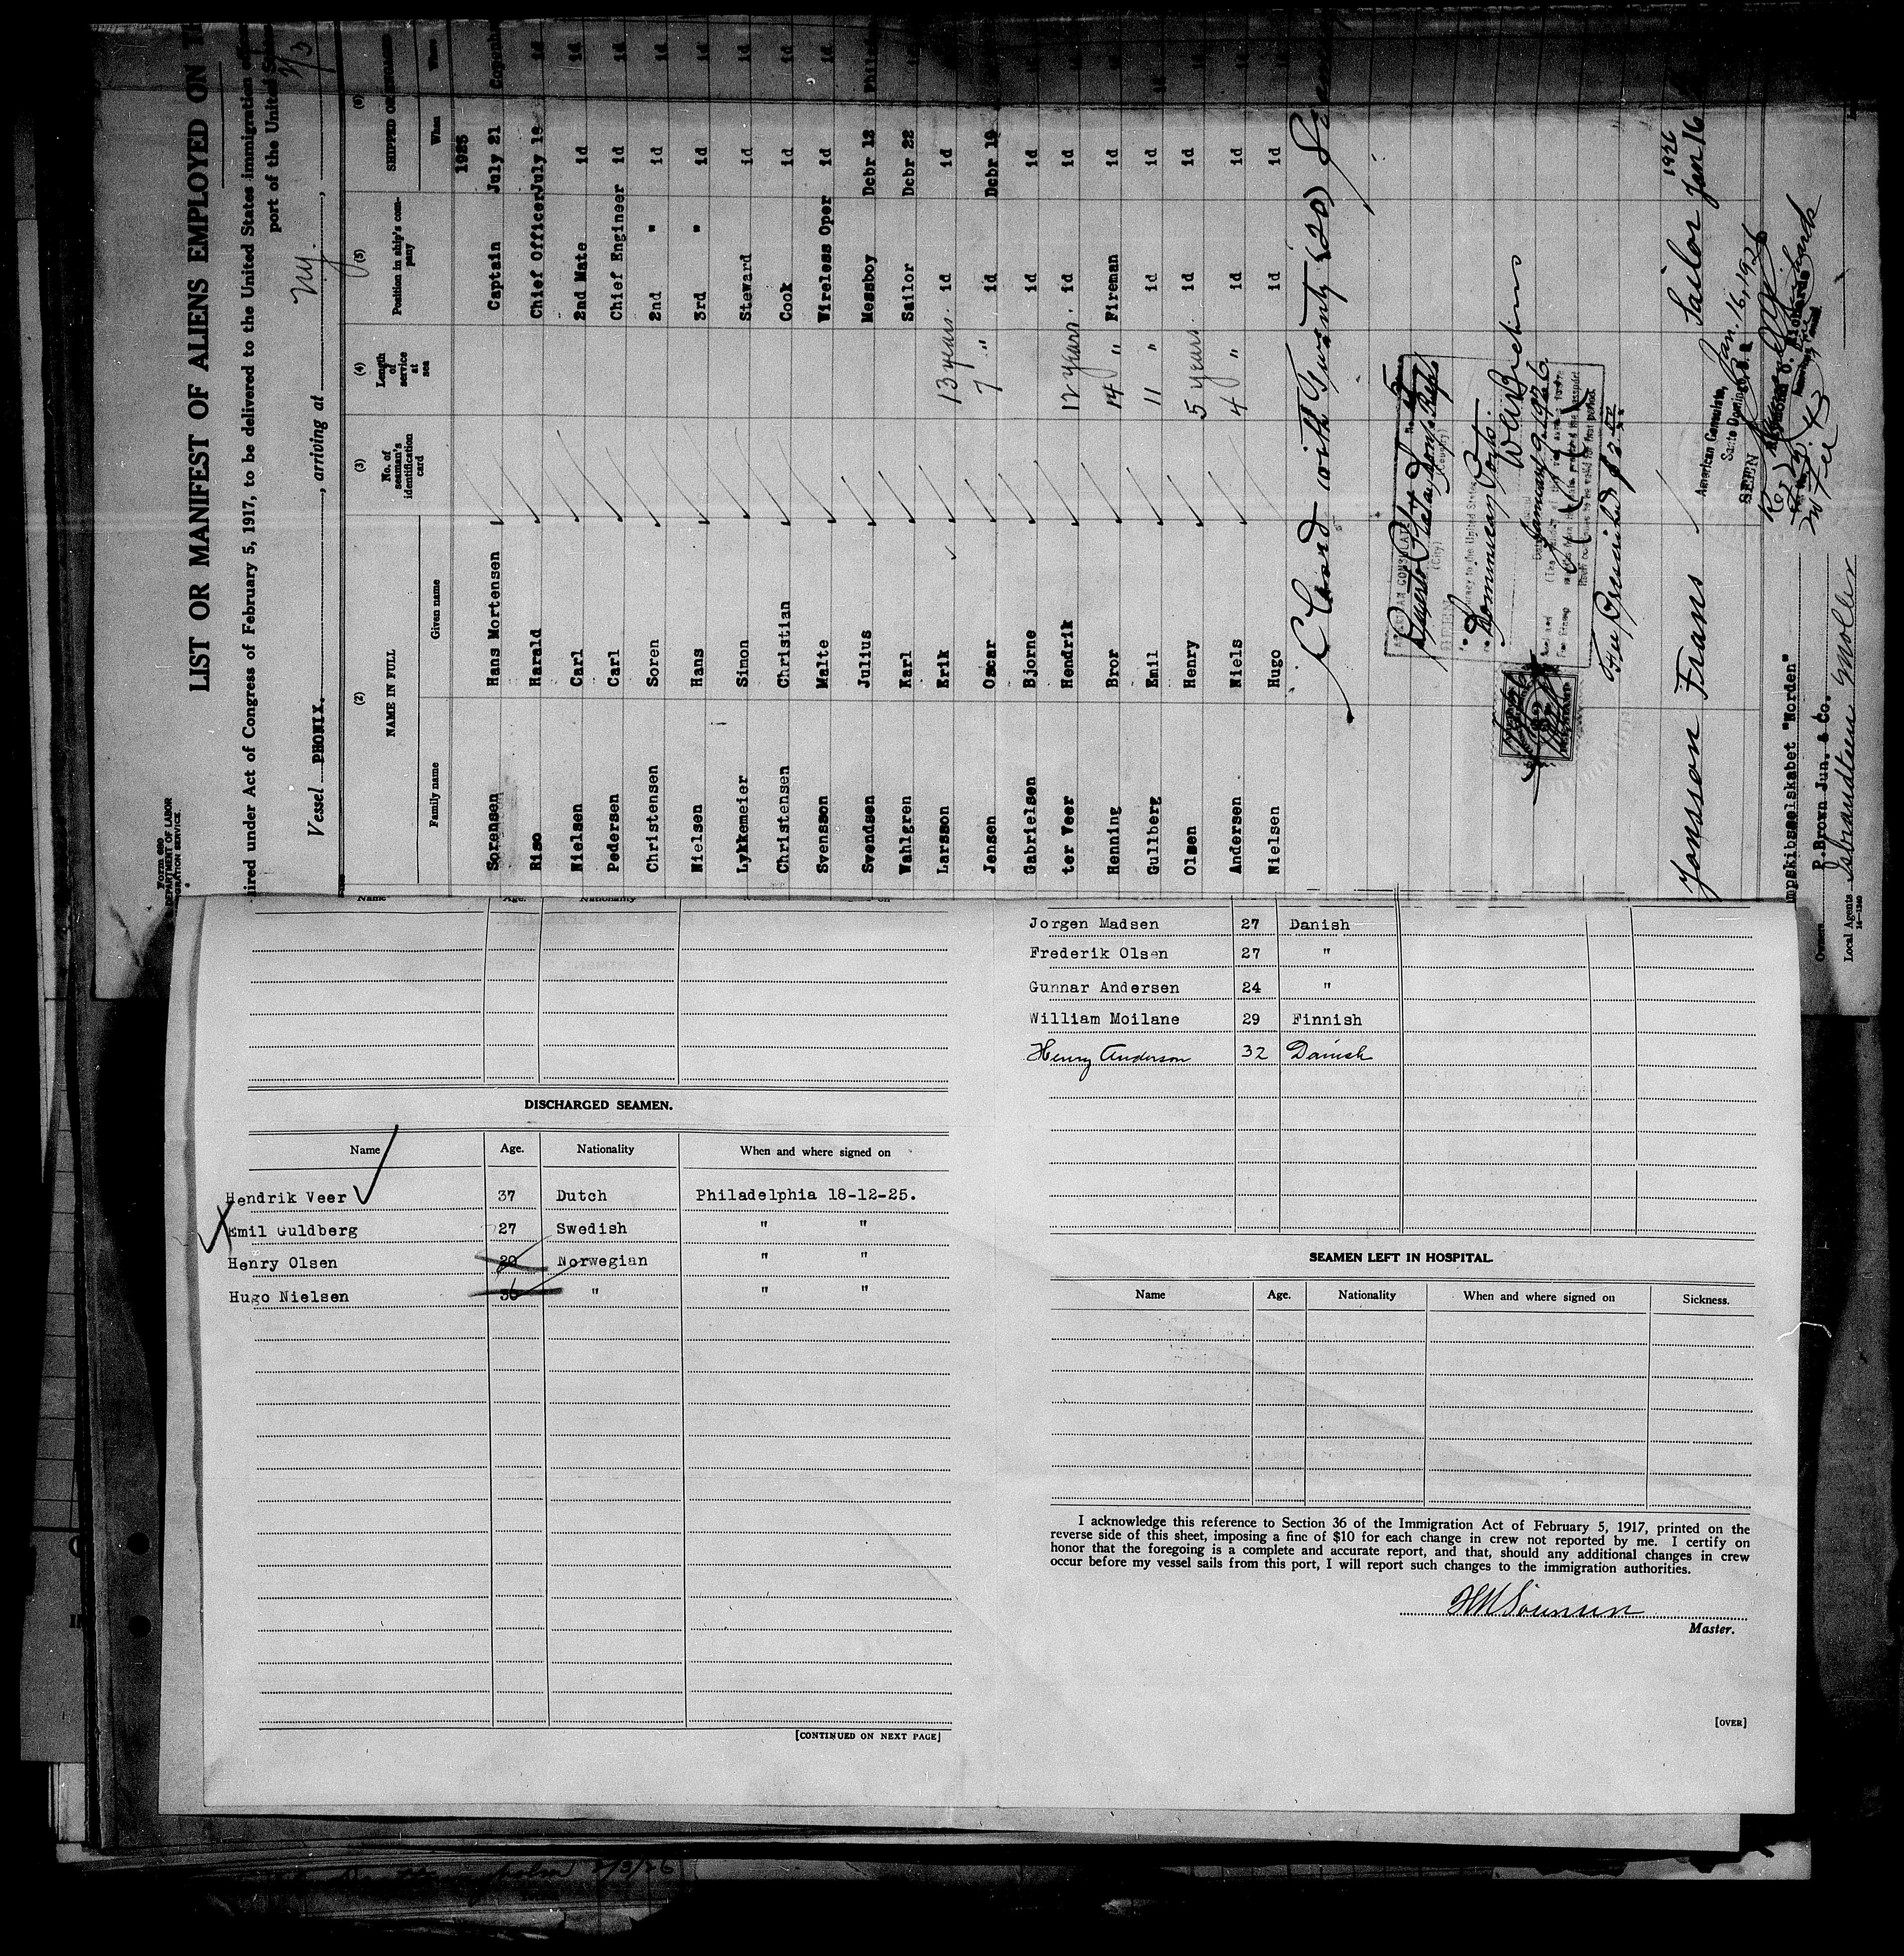 Form 680
DEPARTMENT OF LABOR
IMMIGRATION SERVICE.
LIST OR MANIFEST OF ALIENS EMPLOYED ON
ired under Act of Congress of February 5, 1917, to be delivered to the United States immigration
port of the United
Vessel PHONIX. , arriving at N.Y. ,
(2) (3) (4) (5) (6)
NAME IN FULL No. of seaman's identification card Length of service at sea Position in ship's company SHIPPED OR ENGAGED
Family name Given name When Where
1925
Sorensen Hans Mortensen Captain July 21 Copenh
Riso Harald Chief Officer July 18 id
Nielsen Carl 2nd Mate id id
Pedersen Carl Chief Engineer id id
Christensen Soren 2nd " id id
Nielsen Hans 3rd " id id
Lykkemeier Simon Steward id id
Christensen Christian Cook id id
Svensson Malte Wireless Oper id id
Svendsen Julius Messboy Dcbr 12 Phil
Wahlgren Karl Sailor Dcbr 22 id
Larsson Erik 13 years. id id
Jensen Oscar 7 " id Dcbr 19
Gabrielsen Bjorne id
ter Veer Hendrik 12 years. id id id
Henning Bror 14 " Fireman id id
Gullberg Emil 11 " id id id
Olsen Henry 5 years. id id id
Andersen Niels 4 " id id id
Nielsen Hugo id id id
Closed with Twenty (20)
AMERICAN CONSULATE
Puerto Plata, Dom. Rep.
(City) (Country)
SEEN
Dominican Ports.
January 9, 1926
Fee Stamp
Fee Prescribed $2.00
1926
Jonsson Frans Sailor Jan 16
American Consulate,
Santo Domingo,
Jan. 16, 1926
SEEN
mpskibsselskabet "Norden"
Owners P. Brown Jun. & Co.
Local Agents Isbrandtsen Moller
16—1240
Name Age. Nationality on
DISCHARGED SEAMEN.
Name Age. Nationality When and where signed on
Hendrik Veer 37 Dutch Philadelphia 18-12-25.
Emil Guldberg 27 Swedish " "
Henry Olsen 20 Norwegian " "
Hugo Nielsen 36 " " "
[CONTINUED ON NEXT PAGE]
Jorgen Madsen 27 Danish
Frederik Olsen 27 "
Gunnar Andersen 24 "
William Moilane 29 Finnish
Henry Anderson 32 Danish
SEAMEN LEFT IN HOSPITAL.
Name Age. Nationality When and where signed on Sickness.
I acknowledge this reference to Section 36 of the Immigration Act of February 5, 1917, printed on the
reverse side of this sheet, imposing a fine of $10 for each change in crew not reported by me. I certify on
honor that the foregoing is a complete and accurate report, and that, should any additional changes in crew
occur before my vessel sails from this port, I will report such changes to the immigration authorities.
HMSorensen
Master.
[OVER]